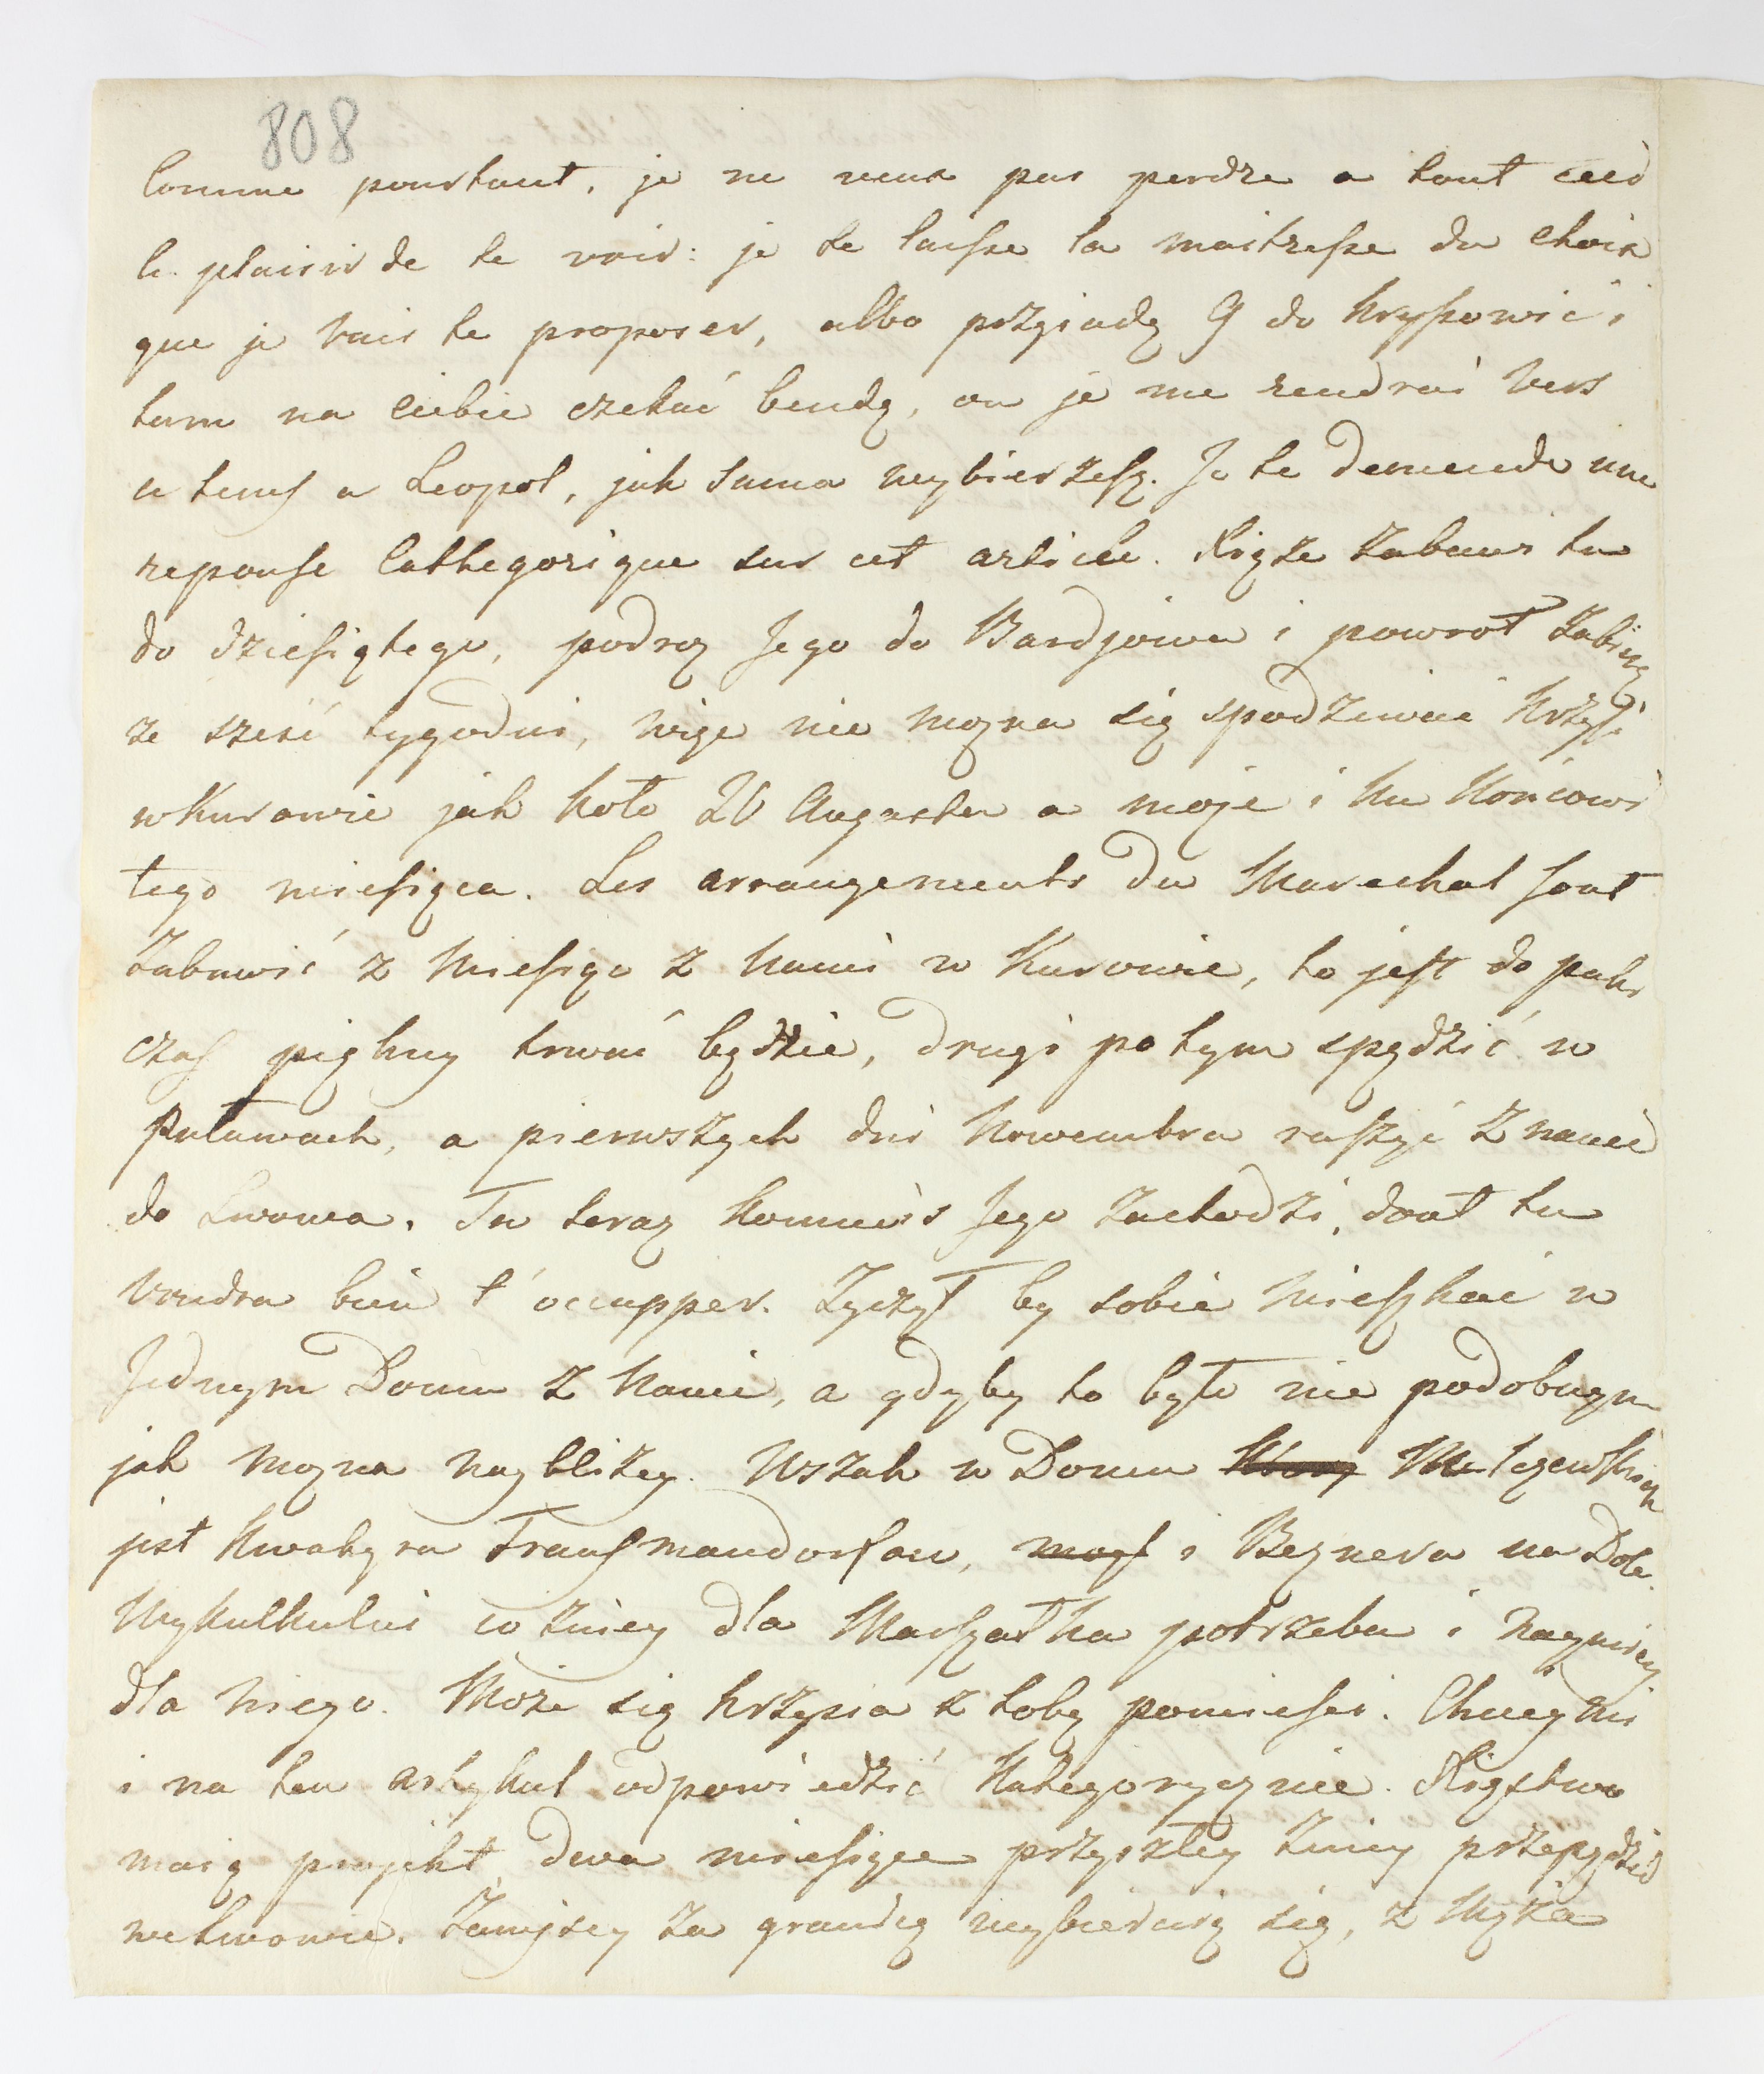 808
Comme pourtant, je ne veux pas perdre a tout ceci
le plaisir de te voir: je te laisse la maitresse du choix
que je vais te proposer, albo przyiadę 9 do Krysowic i
tam na ciebie czekać bendę, ou je me rendrai vers
u tems a Leopol, jak sama wybierzesz. Je te demende une
reponse Cathegorique sur cet article. Xiąże zabawi tu
do dziesiątego, podroz Jego do Bardjowa i powrot zabierą
ze sześć tygodni, więc nie mozna się spodziewać Krzysi
w Kurowie jak koło 20 Augusta a może i ku końcowi
tego miesiąca. Les arrangements du Marechal sont
Zabawić z Miesiąc z Nami w Kurowie, to jest do poki
czas piękny trwać będzie, drugi po tym spędzić w
Puławach, a pierwszych dni Nowembra ruszyć z nami
do Lwowa. Tu teraz Kommis Jego zachodzi, dont tu
voudra bien t'occupper. Zyczył by sobie Mieszkać w
Jednym Domu z Nami, a gdyby to było nie podobnym
jak mozna nayblizey. Wszak w Domu
jest Kwatyra Trausmandorfow, i Beznera na Dole.
Wykalkuluj co zniey dla Marszałka potrzeba i naymiey
dla niego. Może się Krzysia z tobą pomiesci. Chciey mi
i na ten artykuł odpowiedzić Kategorycznie. Xięztwo
maią projekt dwa miesiące przyszłey zimy przepędzić
we Lwowie. Zamyscy za granicę wybieraią się, z Męża